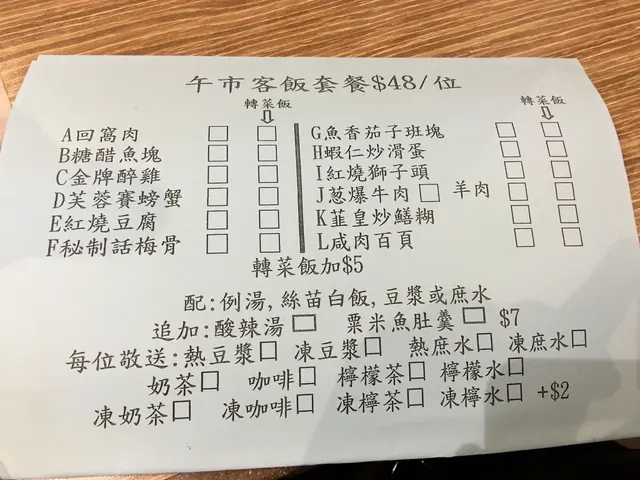 午市客飯套餐$48/位
轉菜飯
⇩
轉菜飯
⇩
A回窩肉 □ □
B糖醋魚塊 □ □
C金牌醉雞 □ □
D芙蓉賽螃蟹 □ □
E紅燒豆腐 □ □
F秘制話梅骨 □ □
G魚香茄子班塊 □ □
H蝦仁炒滑蛋 □ □
I紅燒獅子頭 □ □
J葱爆牛肉 □ 羊肉 □ □
K韮皇炒鱔糊 □ □
L咸肉百頁 □ □
轉菜飯加$5
配:例湯,絲苗白飯,豆漿或庶水
追加:酸辣湯□ 粟米魚肚羹□ $7
每位敬送:熱豆漿□ 凍豆漿□ 熱庶水□ 凍庶水□
奶茶□ 咖啡□ 檸檬茶□ 檸檬水□
凍奶茶□ 凍咖啡□ 凍檸茶□ 凍檸水□ +$2